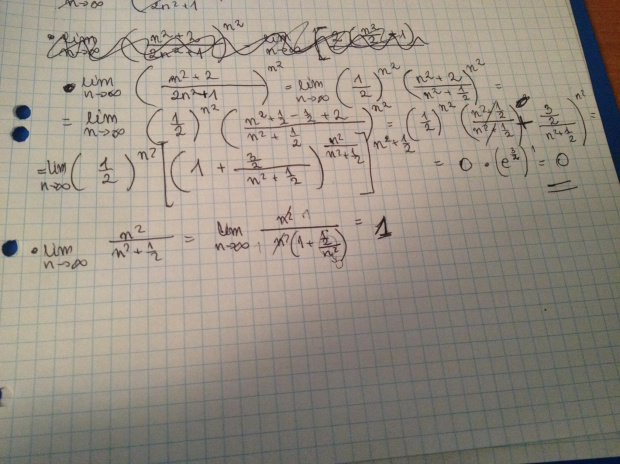 n→∞ ( 2n²+1
• lim n→∞ ( (n²+2)/(2n²+1) )^n² = lim n→∞ [
• lim n→∞ ( (n²+2)/(2n²+1) )^n² = lim n→∞ (1/2)^n² ( (n²+2)/(n²+1/2) )^n² =
= lim n→∞ (1/2)^n² ( (n²+1/2-1/2+2)/(n²+1/2) )^n² = (1/2)^n² ( (n²+1/2)/(n²+1/2) + (3/2)/(n²+1/2) )^n² =
= lim n→∞ (1/2)^n² [ ( 1 + (3/2)/(n²+1/2) )^n²/(n²+1/2) ]^n²+1/2 = 0 · (e^3/2)^1 = 0
• lim n→∞ n²/(n²+1/2) = lim n→∞ n² 1/(n²(1+(1/2)/n²)) = 1